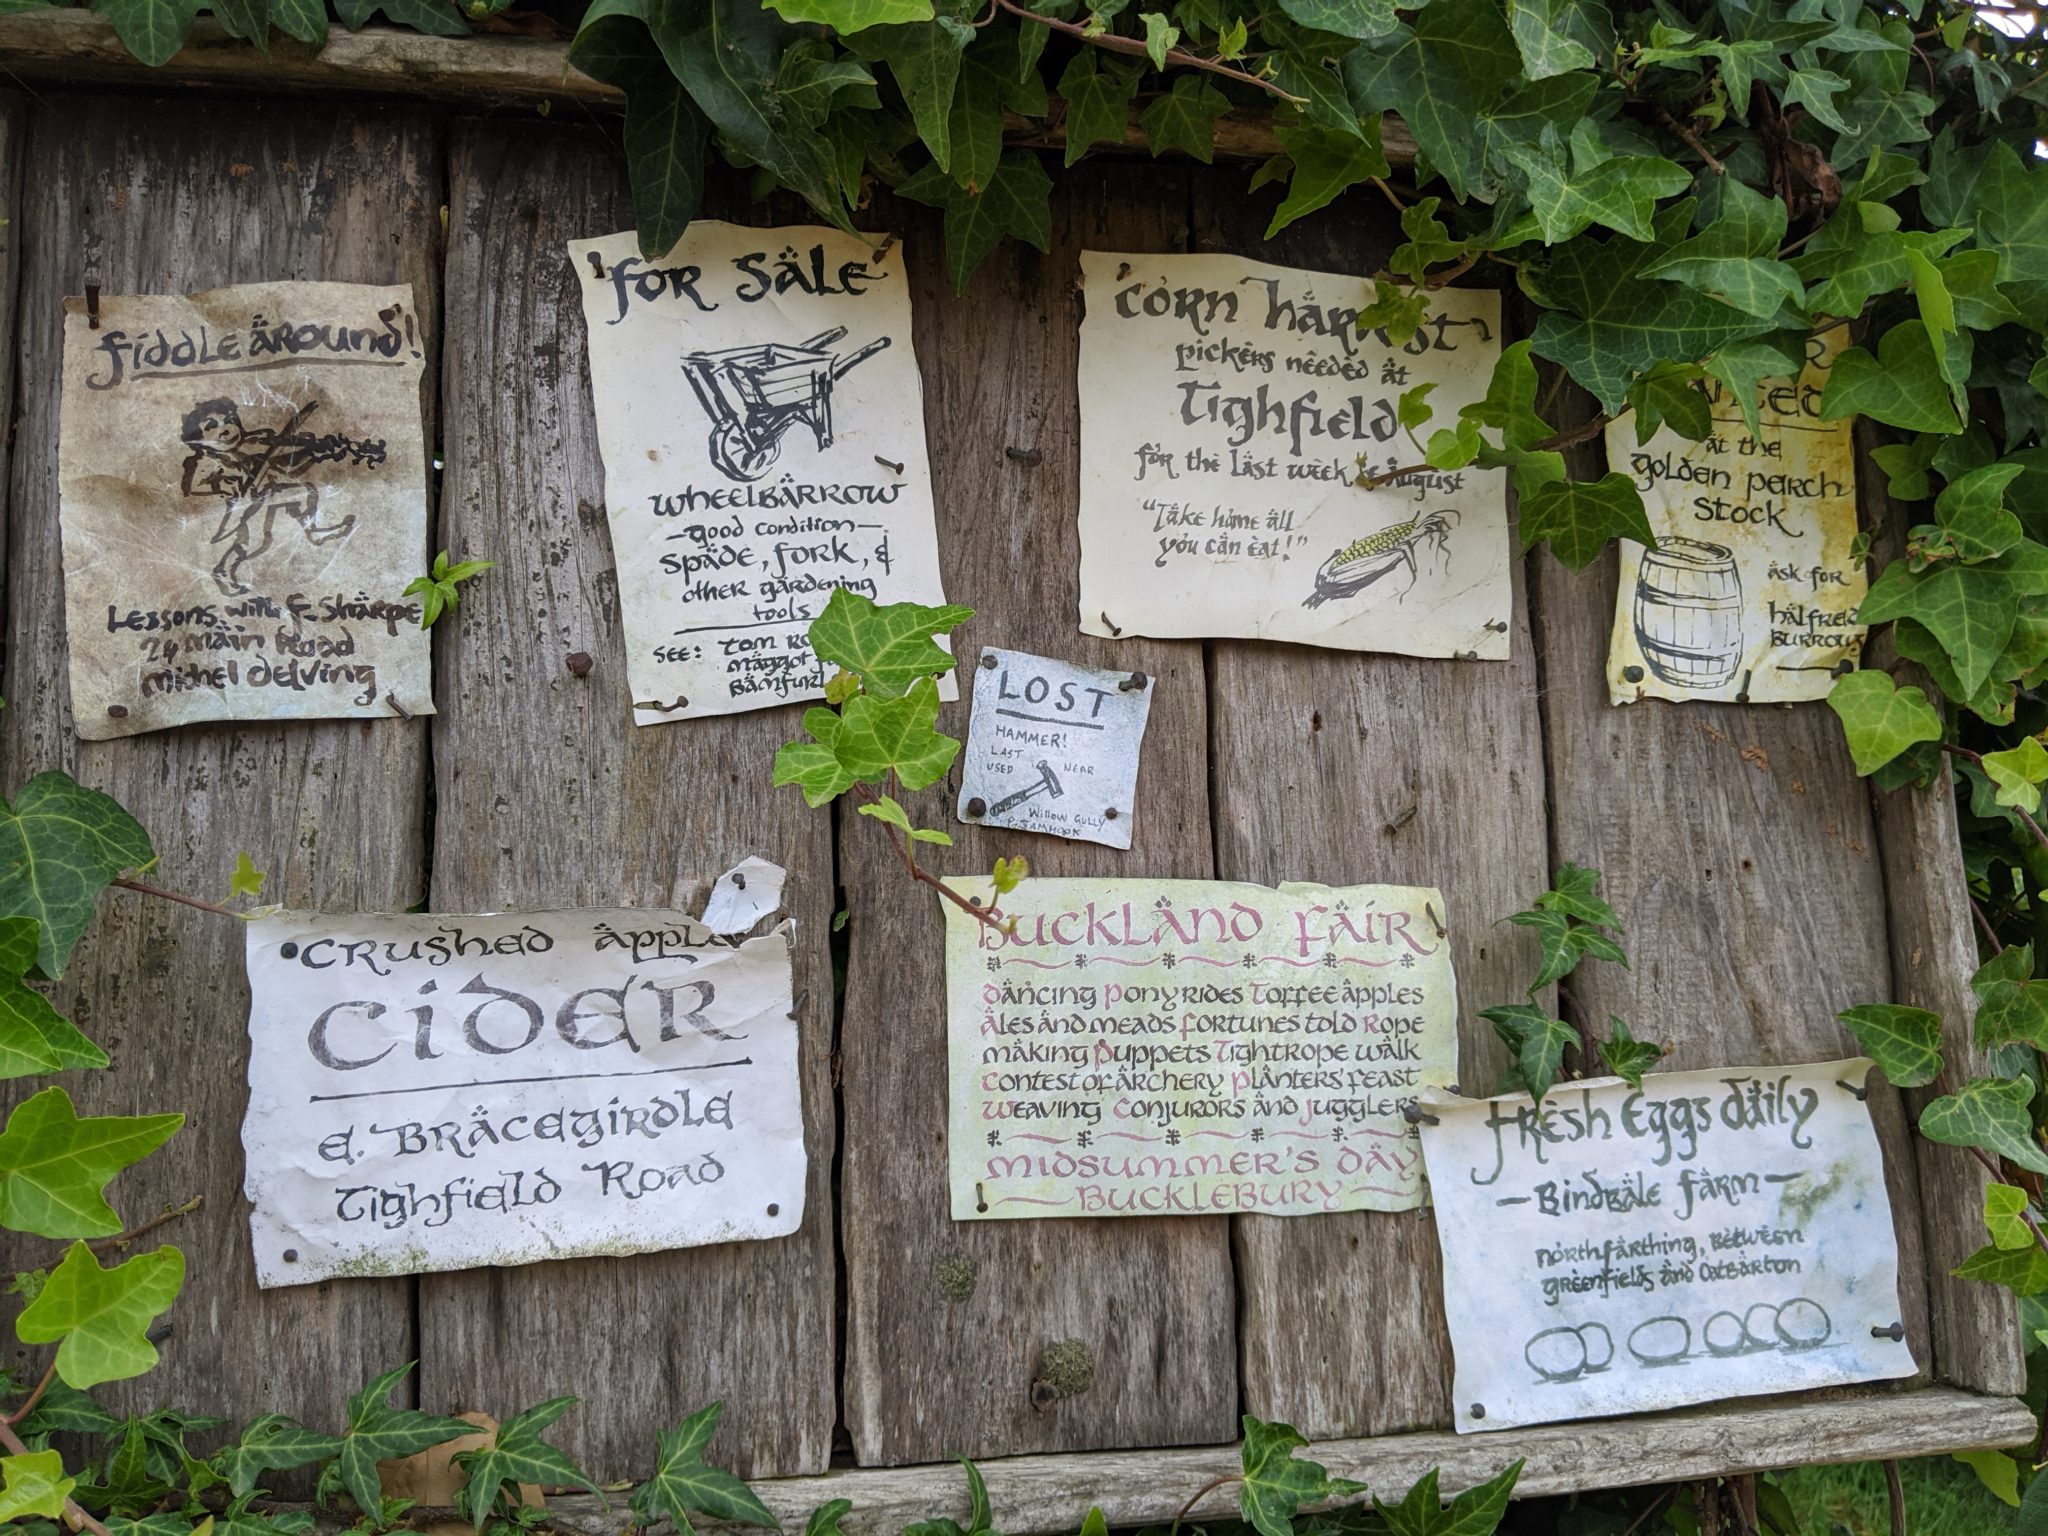 fiddle around!
Lessons with F. Sharpe
24 Main Road
Michel Delving
for Sale
wheelbarrow
—good condition—
spade, fork, &
other gardening
tools
see: Tom
Maggot
corn harvest
pickers needed at
Tighfield
for the last week August
"Take home all
you can eat!"
at the
golden perch
stock
ask for
halfred
LOST
HAMMER!
LAST
USED NEAR
Willow Gully
crushed apple
cider
E. Bracegirdle
Tighfield Road
Buckland Fair
Dancing Pony rides Toffee apples
Ales and meads Fortunes told Rope
making Puppets Tightrope walk
Contest of archery Planters' feast
Weaving Conjurors and Jugglers
Midsummer's Day
— Bucklebury —
Fresh Eggs daily
— Bindbale Farm —
northfarthing, between
greenfields and Oatbarton